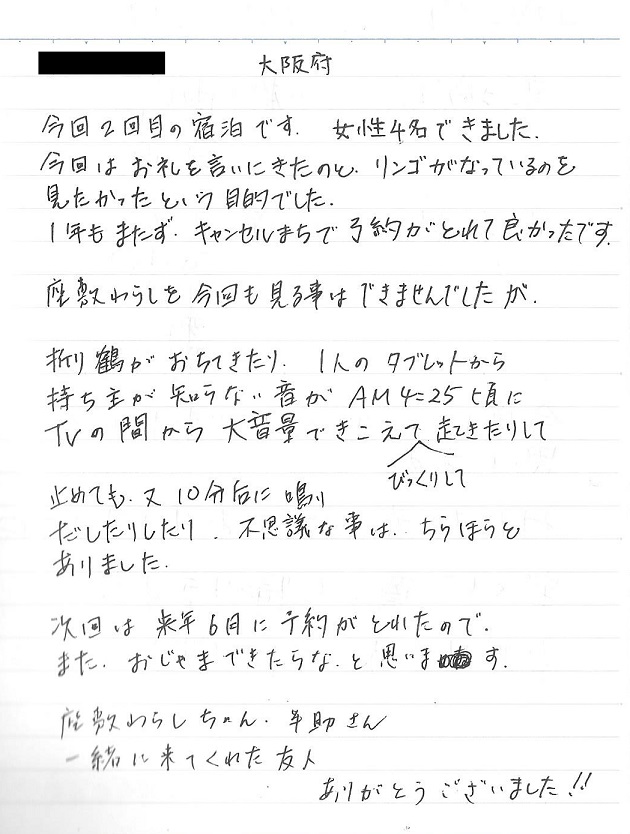 大阪府
今回2回目の宿泊です. 女性4名できました.
今回は お礼を言いにきたのと. リンゴがなっているのを
見たかったという 目的でした.
1年もまたず. キャンセルまちで 予約がとれて 良かったです.
座敷わらしを 今回も 見る事は できませんでしたが.
折り鶴が おちてきたり. 1人の タブレットから
持ち主が 知らない 音が AM4=25 頃に
TVの間から 大音量できこえて 起きたりして
びっくりして
止めても. 又 10分后に 鳴り
だしたりしたり. 不思議な事は. ちらほらと
ありました.
次回は 来年 6月に 予約が とれたので.
また. おじゃまできたらな. と 思います.
座敷わらしちゃん. 早助さん
一緒に来てくれた友人
ありがとう ございました!!